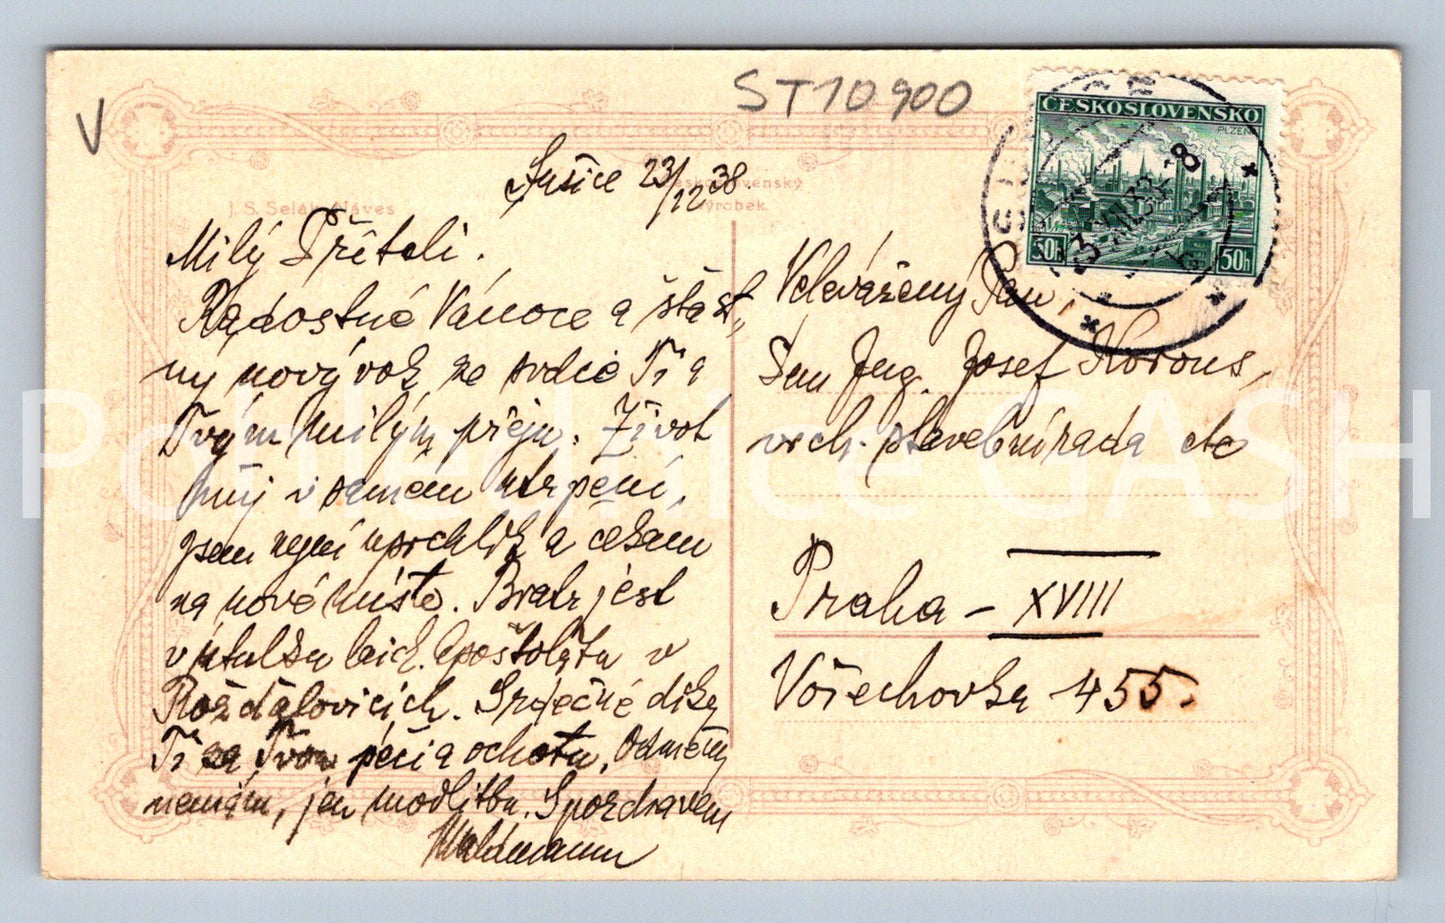 V
ST10900
ČESKOSLOVENSKO
PLZEŇ
50h 50h
Československý
výrobek.
J. S. Selák, Náves
Sušice 23/12 38
Milý Příteli.
Radostné Vánoce a šťast„
ný nový rok ze srdce Ti a
Tvým milým přeju. Život
můj v samém utrpení,
jsem nyní uprchlík a čekám
na nové místo. Bratr jest
v útulku laich. apoštolátu v
Rožďalovicích. Srdečné díky
Ti za Tvou péči a ochotu, odměny
nemám, jen modlitbu. S pozdravem
Waldmann
Velevážený Pan,
Ing. Josef
vrch. stavební rada etc
Praha - XVIII
Vořechovka 455.
Pohlednice GASH